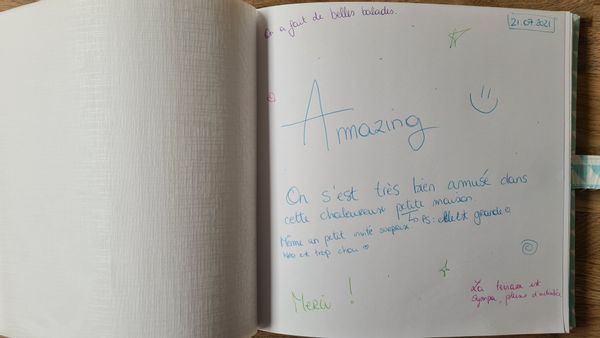 On a fait de belles balades.
21.07.2021
Amazing
On s'est très bien amusé dans
cette chaleureux petite maison
Ps: Elle est grande
Même un petit invité surprise
est trop chou
Merci !
La terrasse est
sympa, pleine d'activités